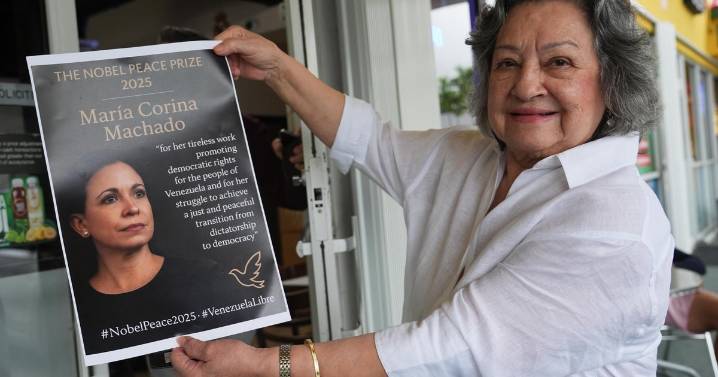 THE NOBEL PEACE PRIZE
2025
María Corina
Machado
"for her tireless work
promoting
democratic rights
for the people of
Venezuela and for her
struggle to achieve
a just and peaceful
transition from
dictatorship
to democracy"
#NobelPeace2025 · #VenezuelaLibre